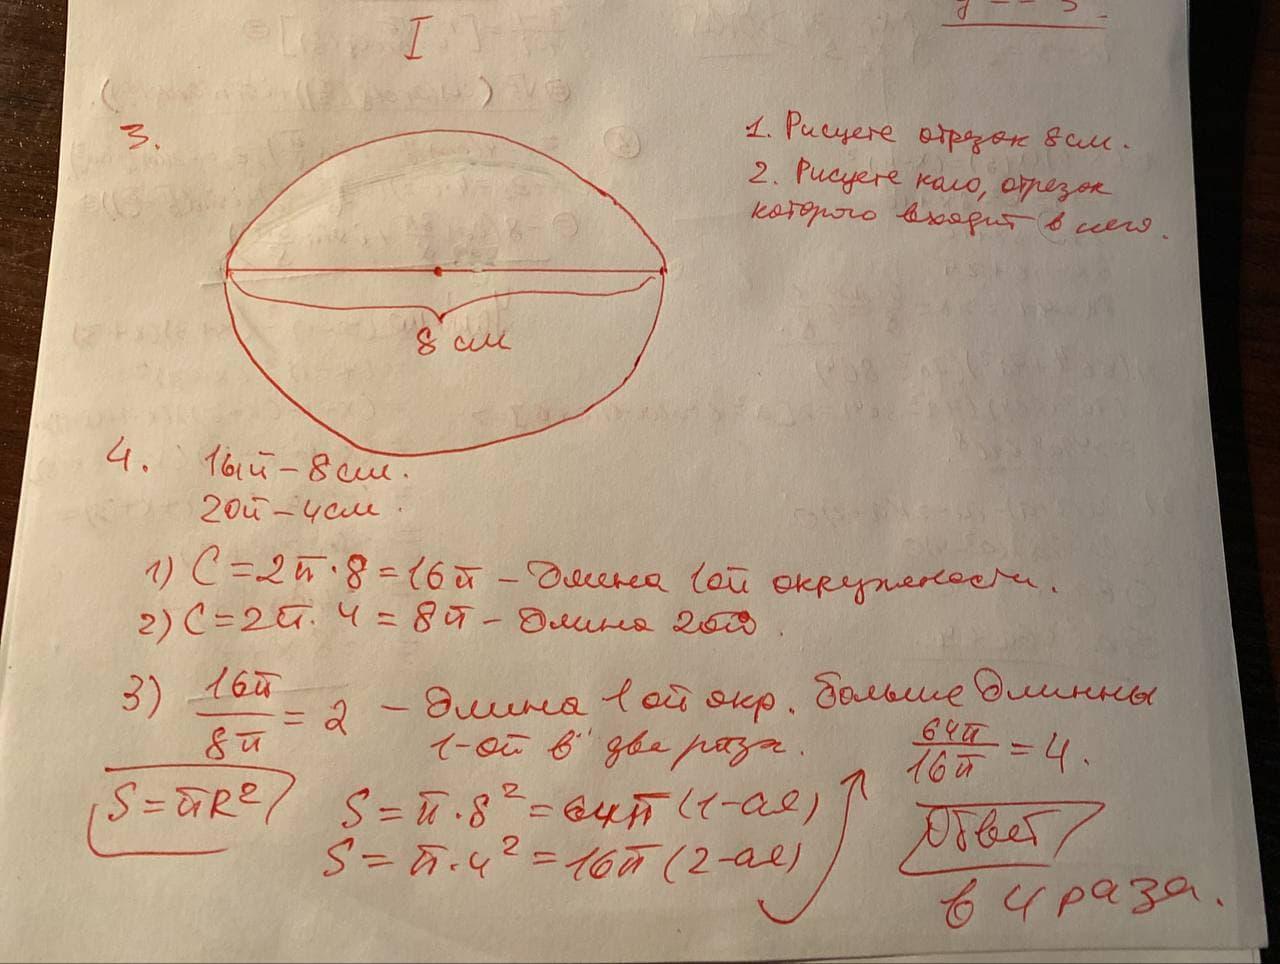 I
3.
1. Рисуете отрезок 8 см.
2. Рисуете коло, отрезок
которого входит в него.
8 см
4. 1ый – 8 см.
2ой – 4 см.
1) C = 2π · 8 = 16π – Длина 1ой окружности.
2) C = 2π · 4 = 8π – Длина 2ой.
3) 16π/8π = 2 – Длина 1ой окр. больше Длинны
1-ой в две раза.
64π/16π = 4.
S = πR²
S = π · 8² = 64π (1-ая)
S = π · 4² = 16π (2-ая)
Ответ
в 4 раза.